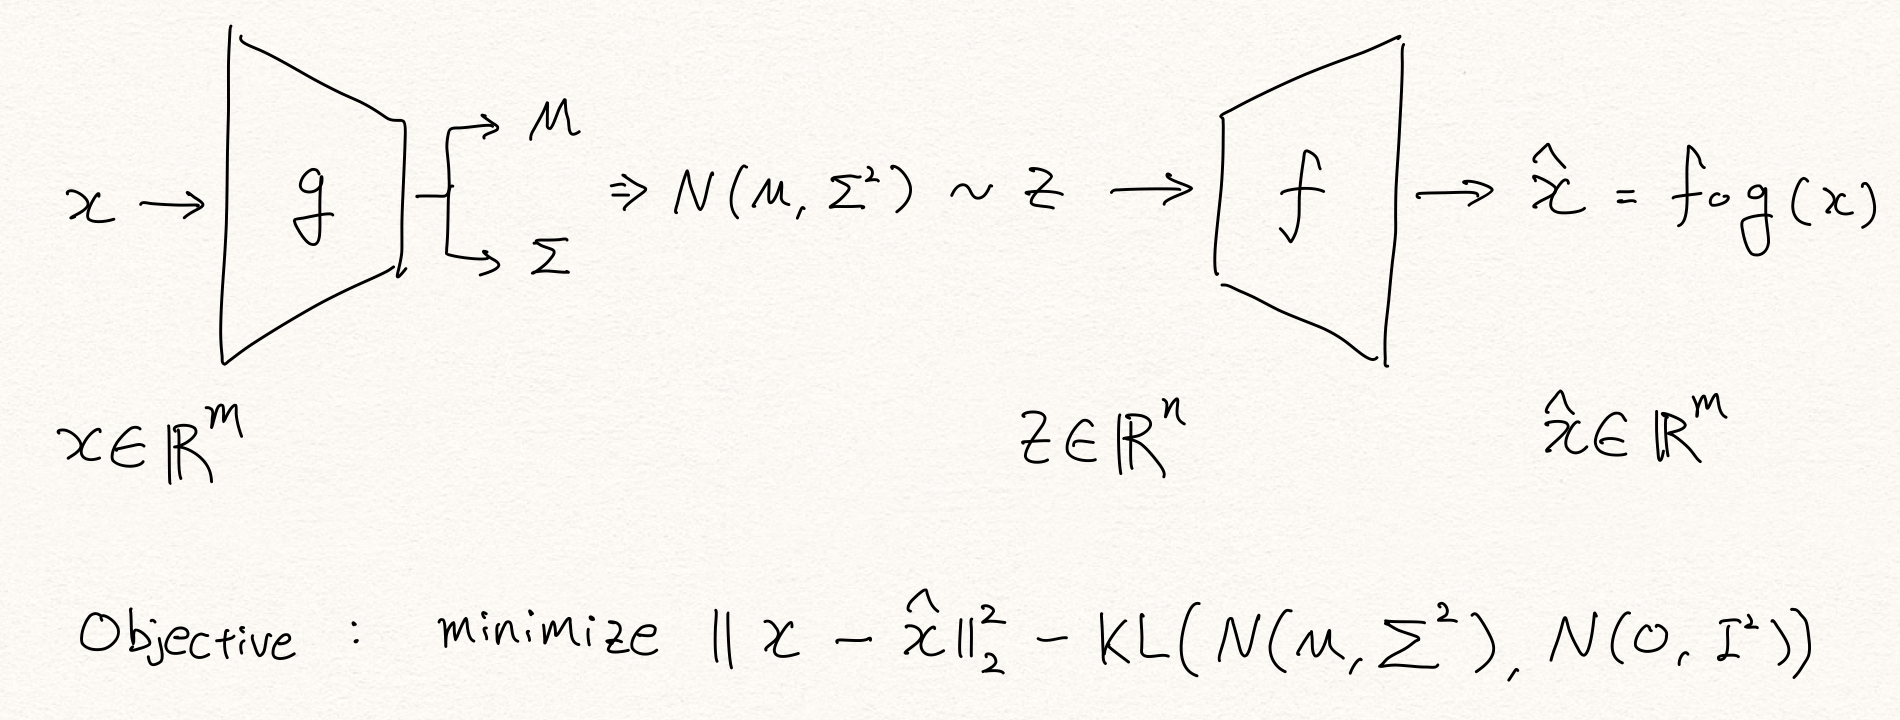 x → g → μ
Σ
⇒ N(μ, Σ²) ~ z → f → x̂ = f∘g(x)
x ∈ ℝᵐ z ∈ ℝⁿ x̂ ∈ ℝᵐ
Objective : minimize ‖x − x̂‖₂² − KL(N(μ, Σ²), N(0, I²))